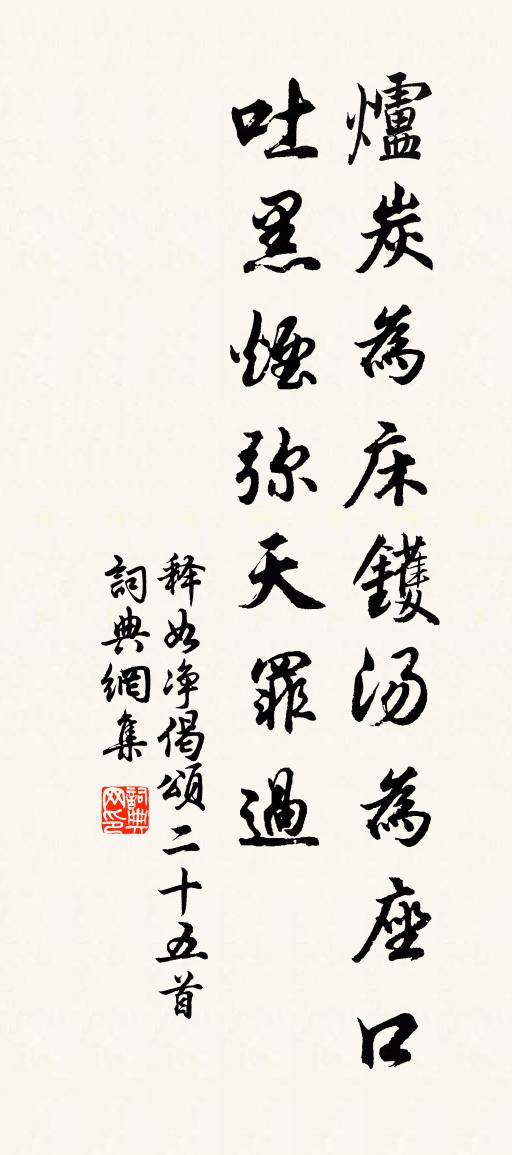 爐炭為床鑊湯為座口
吐黑煙弥天罪過
释如净偈頌二十五首
詞典網集
詞典网印